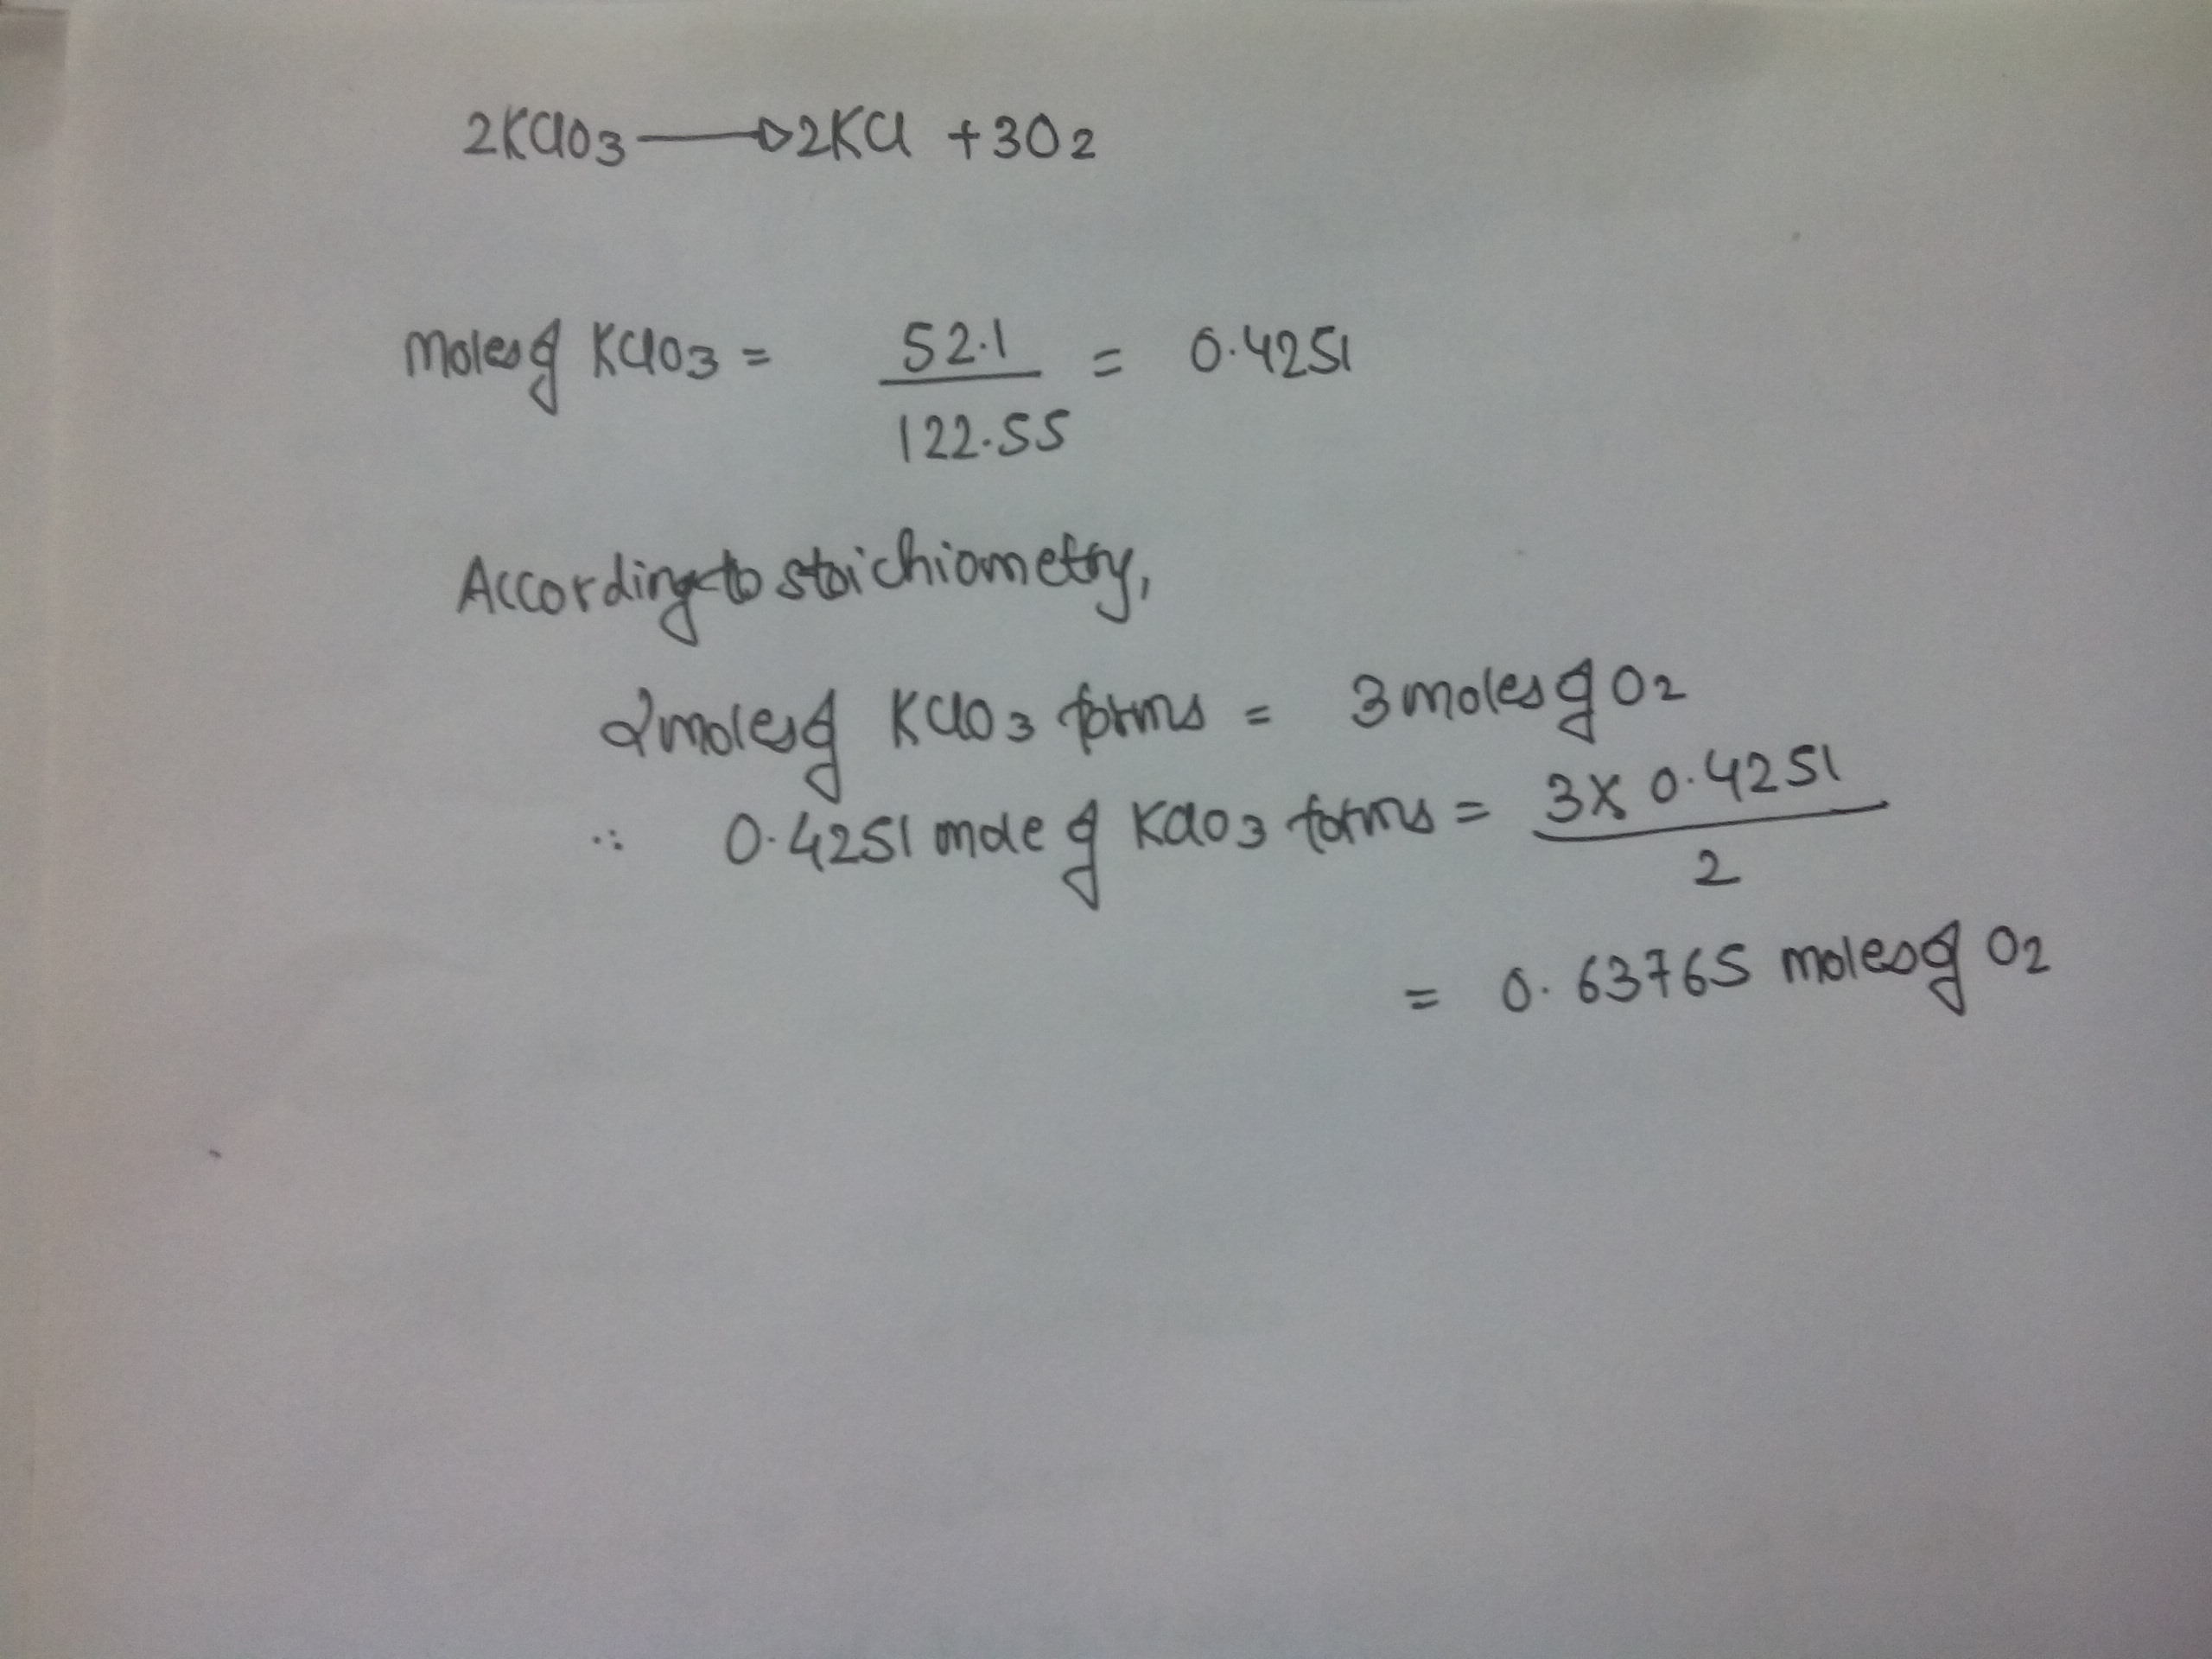 2KClO3 → 2KCl + 3O2
Moles of KClO3 = 52.1 / 122.55 = 0.4251
According to stoichiometry,
2 moles of KClO3 forms = 3 moles of O2
∴ 0.4251 mole of KClO3 forms = 3 x 0.4251 / 2
= 0.63765 moles of O2